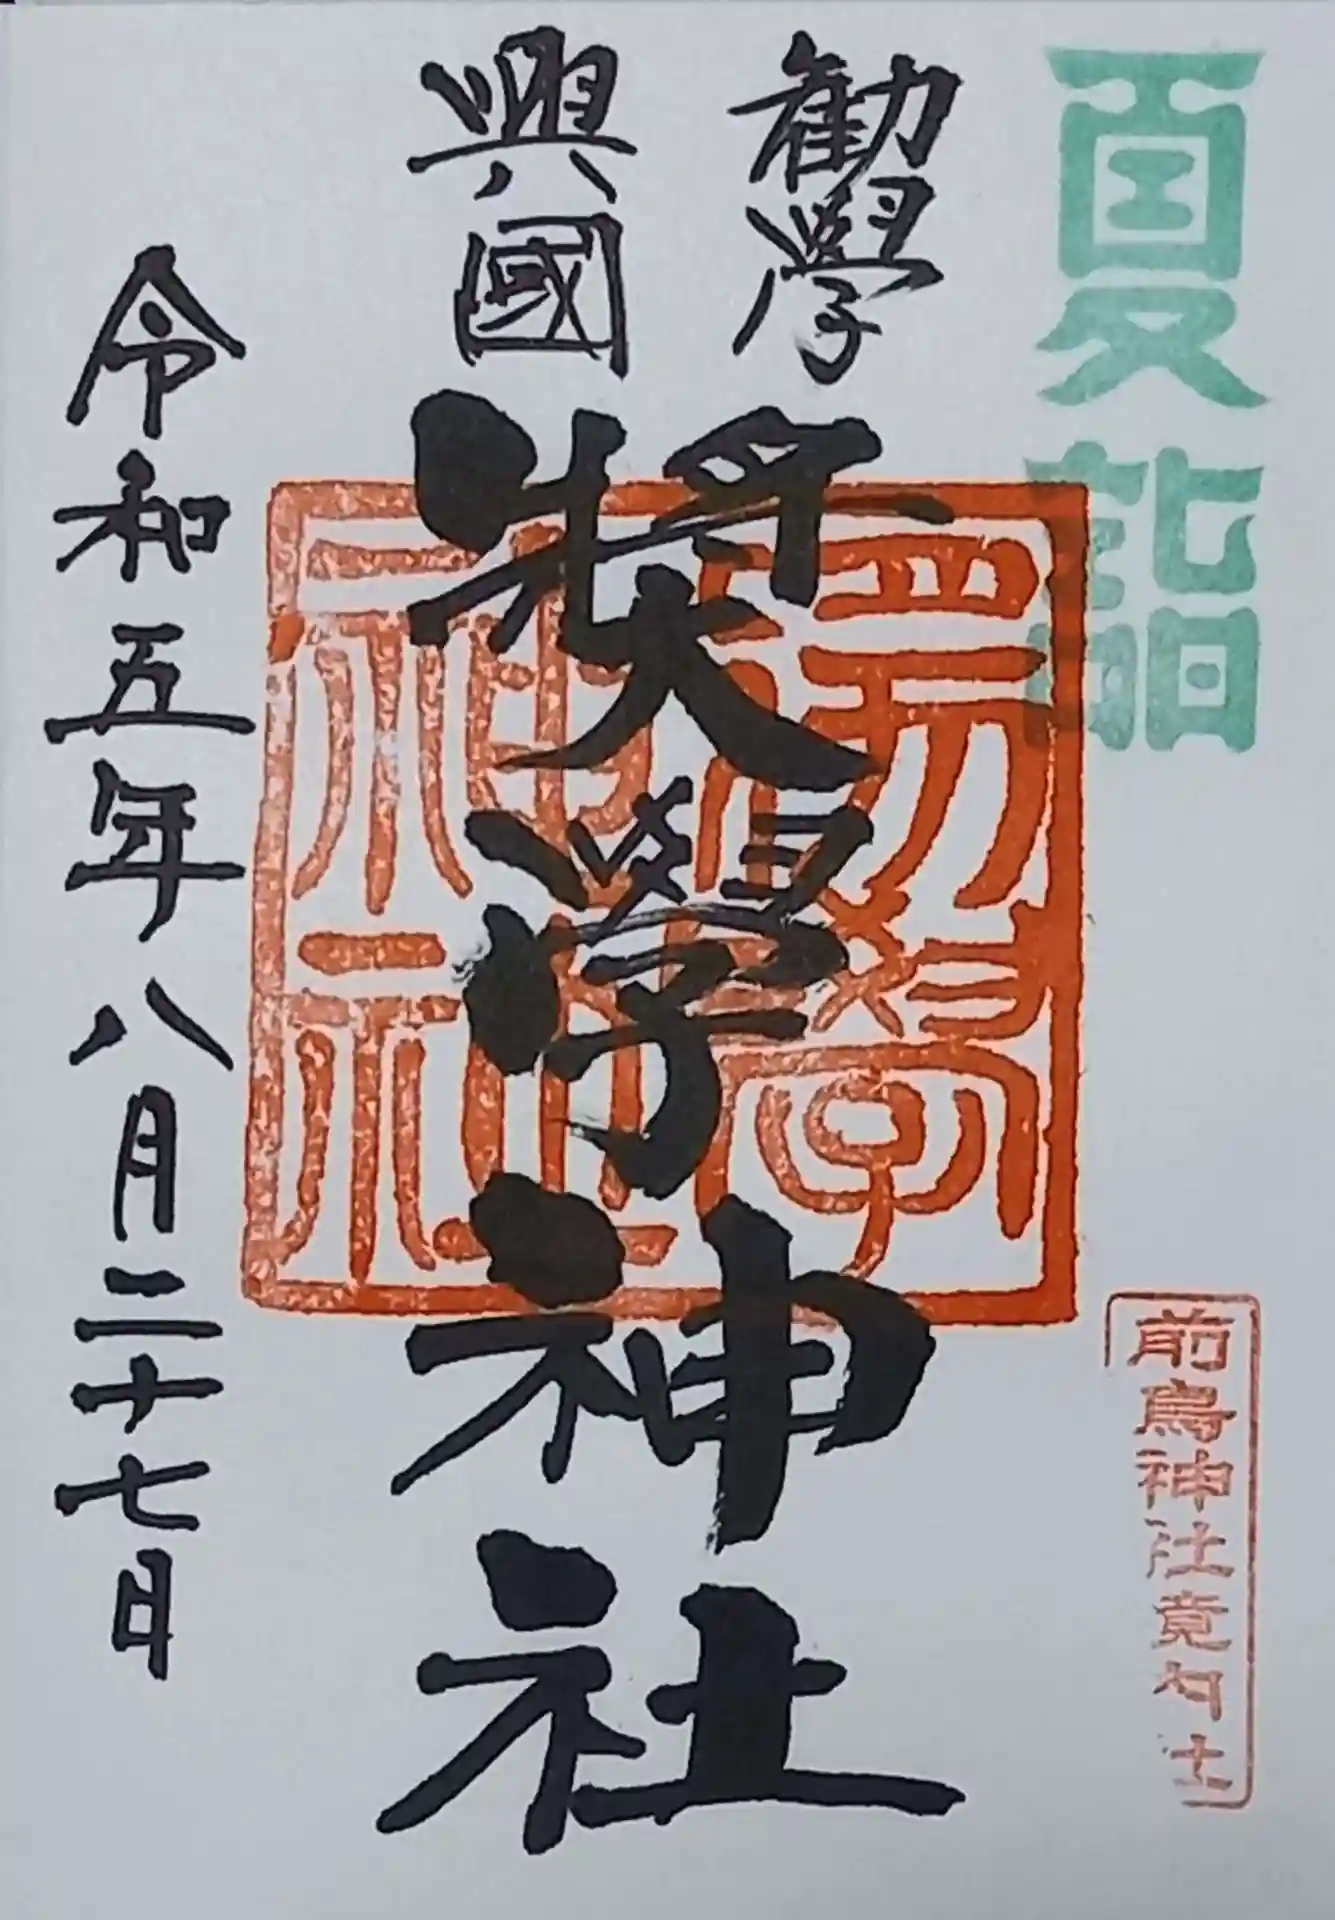 夏詣
勧學
興國
奬學神社
學
神社
前鳥神社境内社
令和五年八月二十七日